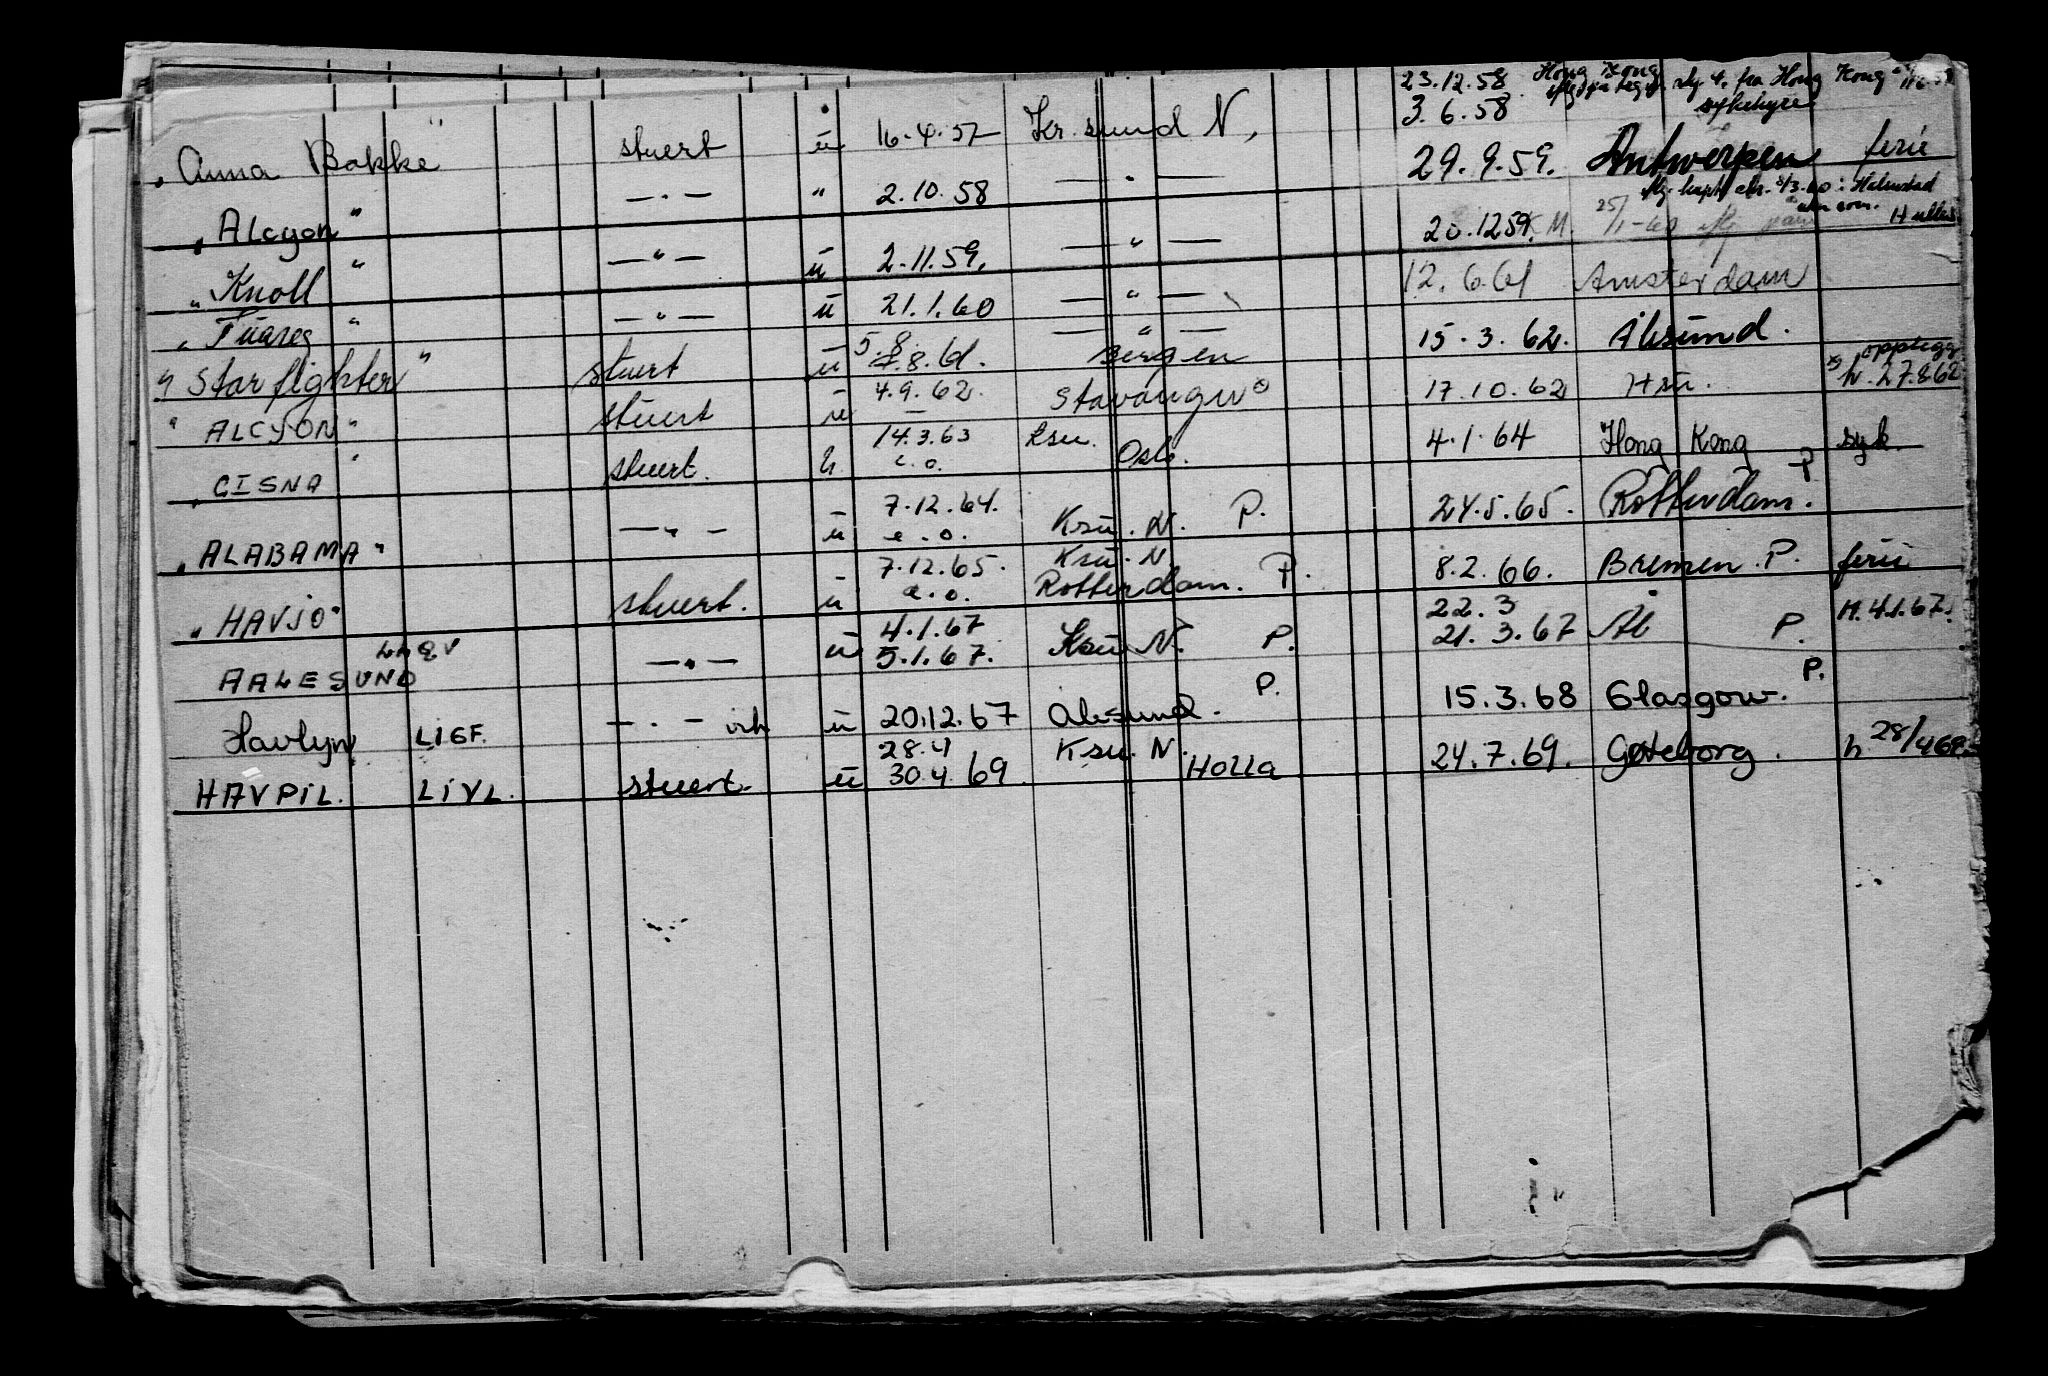 23.12.58 Hong Kong fra Hong Kong
3.6.58 sykehyre
"Anna Bakke" stuert ü 16.4.57 Kr.sund N,
29.9.59. Antwerpen ferie
"Alcyon" — . — " 2.10.58 — . —
"Knoll" — " — ü 2.11.59. — " — 20.12.59 K.M. 25/1-60 Hull
"Tuareg" — " — ü 21.1.60 — " — 12.6.61 Amsterdam
5.8 — " —
"Starflighter" stuert ü 8.61. Bergen 15.3.62. Ålesund.
4.9.62. opplegg
"ALCYON" stuert ü — Stavanger 17.10.62 Hsü. h.27.8.62
14.3.63 Ksu.
"CISNA" stuert. h. e.o. Oslo. 4.1.64 Hong Kong syk
7.12.64. P
"ALABAMA" — " — ü e.o. Ksü. N. P. 24.5.65. Rotterdam.
7.12.65. Ksü. N
"HAVJO" stuert. ü e.o. Rotterdam. P. 8.2.66. Bremen. P. ferie
LAQV 4.1.67 22.3
AALESUND — . — ü 5.1.67. Ksü N. P. 21.3.67 Ål P. H.4.1.67.
P. P.
Havlyn LIGF. — . — ü 20.12.67 Ålesund. 15.3.68 Glasgow.
28.4 Ksu. N.
HAVPIL. LIVL. stuert ü 30.4.69 Holla 24.7.69. Gøteborg. h 28/4 69